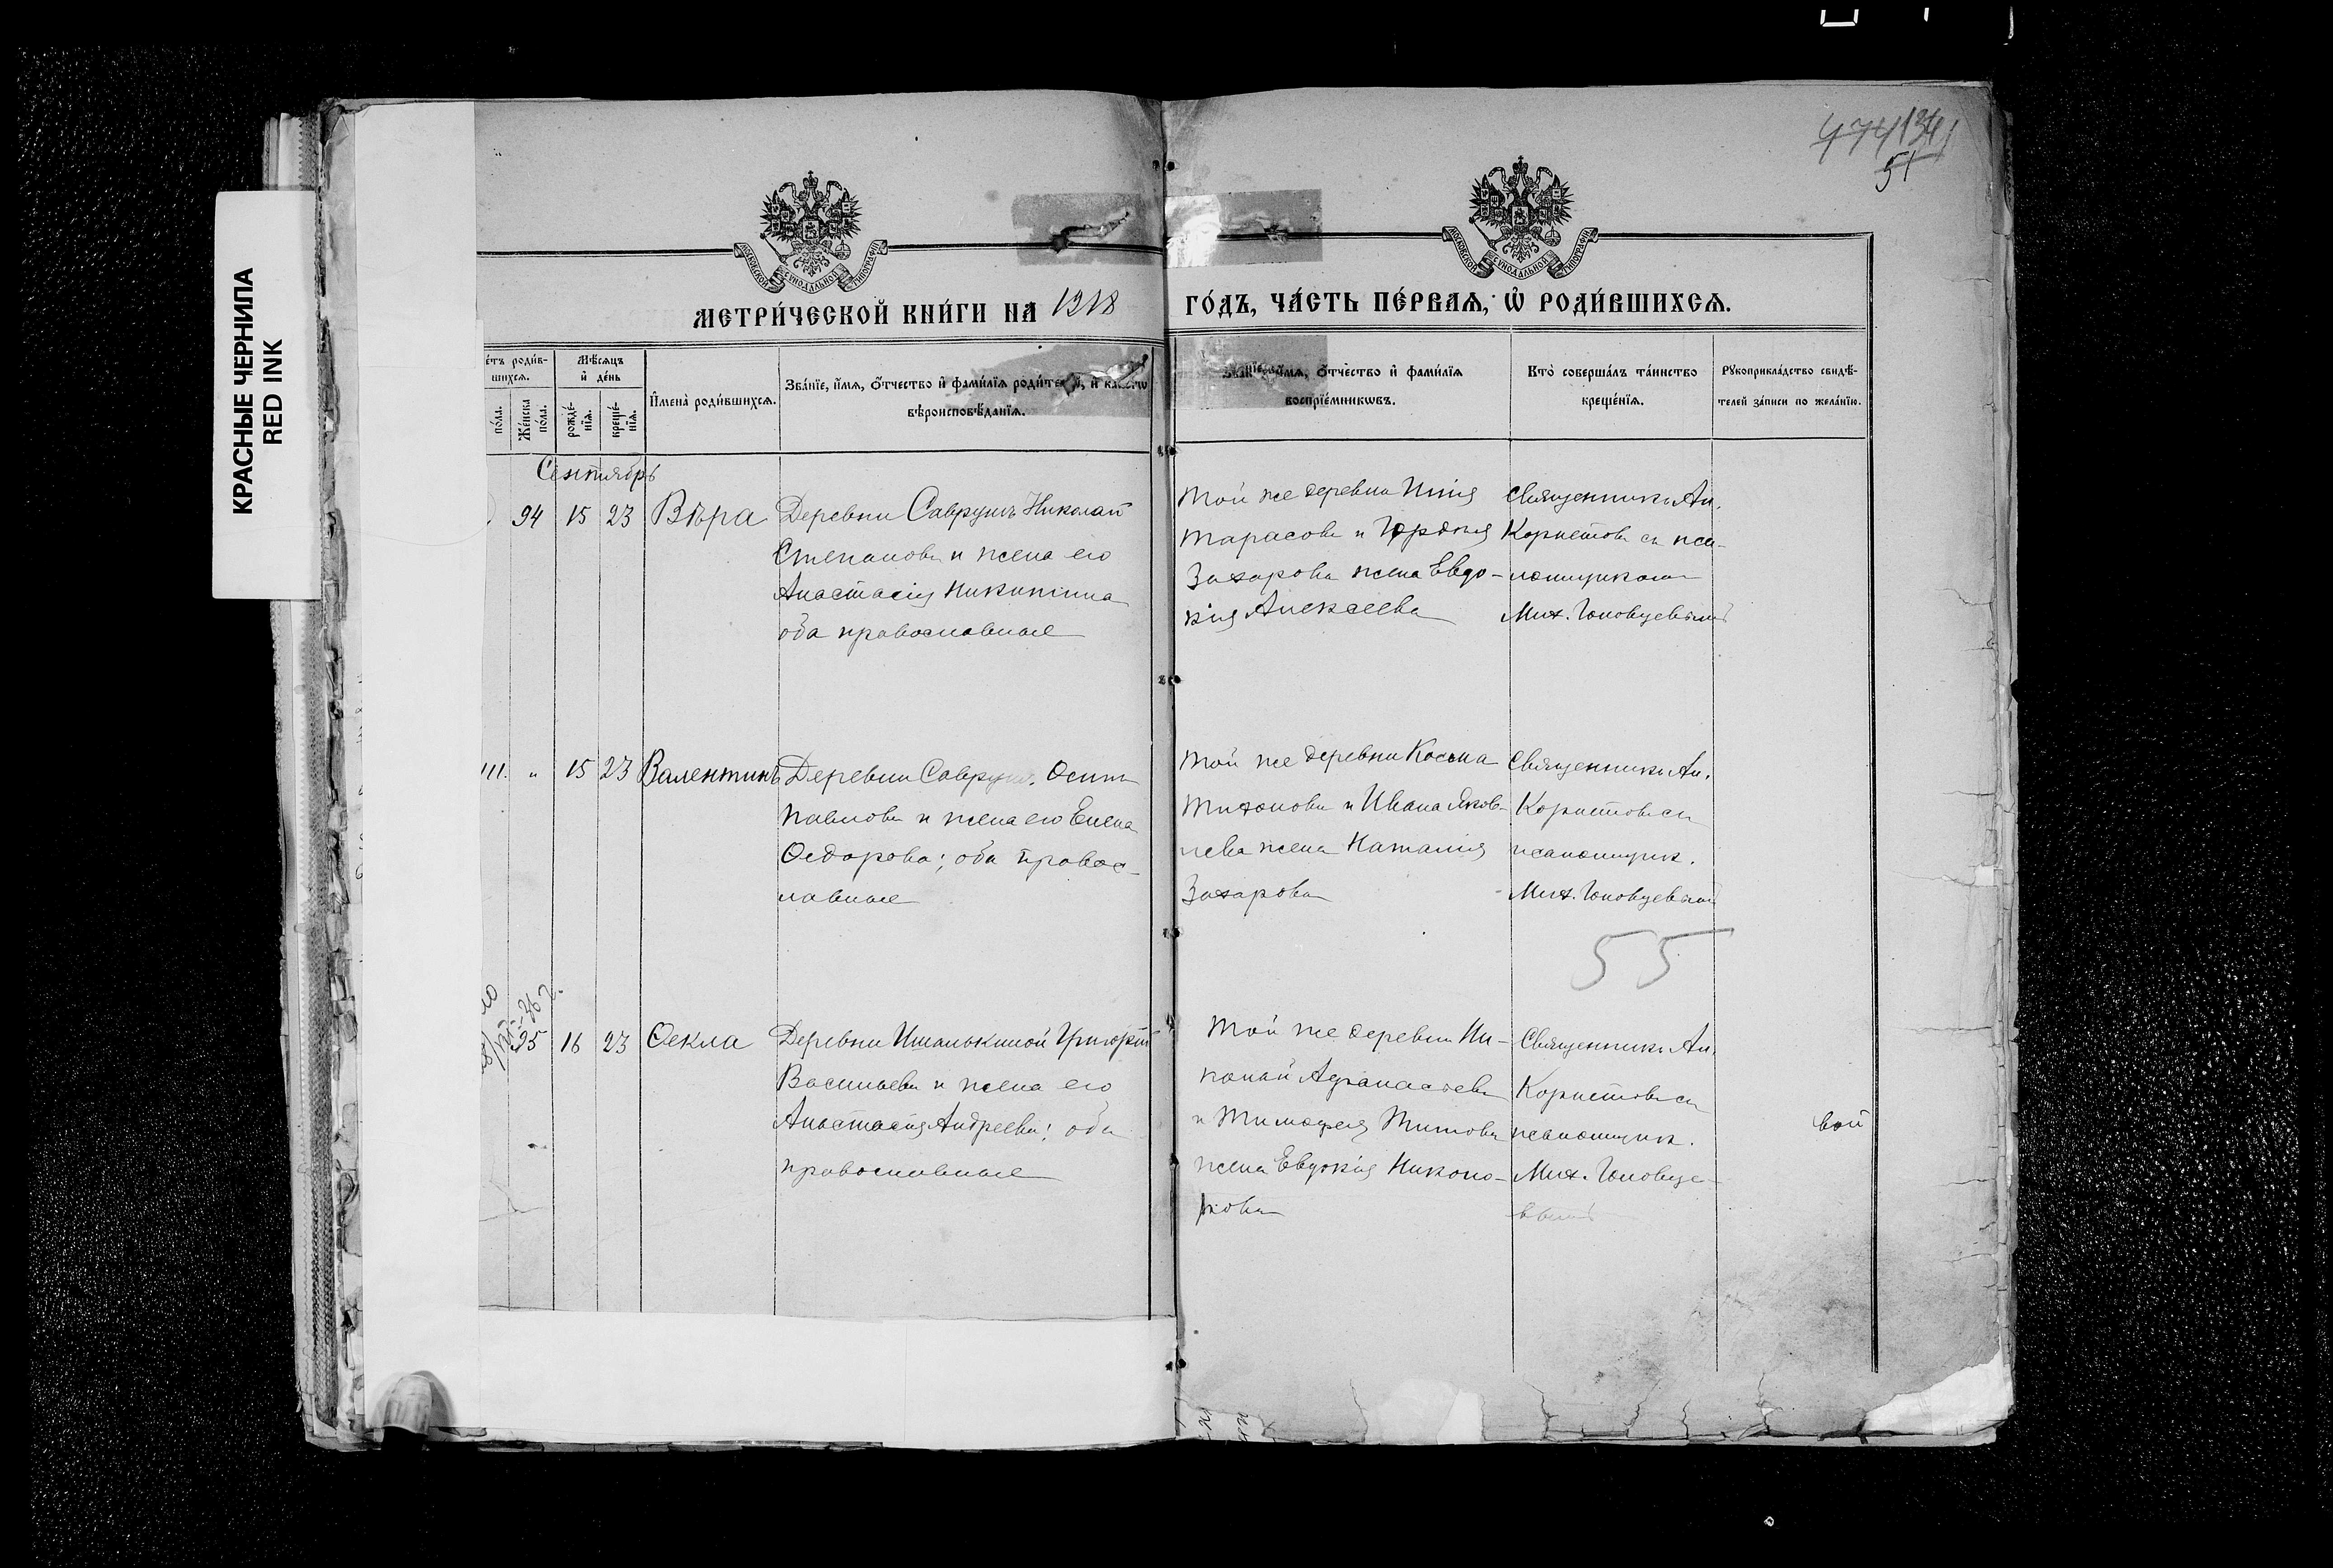 КРАСНЫЕ ЧЕРНИЛА
RED INK
51
МЕТРИ́ЧЕСКОЙ КНИ́ГИ НА 1918
ГО́ДЪ, ЧА́СТЬ ПЕ́РВАЯ, Ѡ҆ РОДИ́ВШИХСЯ.
МОСКОВСКОЙ СѴНОДАЛЬНОЙ ТИПОГРАФІИ
МОСКОВСКОЙ СѴНОДАЛЬНОЙ ТИПОГРАФІИ
е́тъ роди́в-
шихся.
по́ла.
Же́нска по́ла.
Мѣ́сяцъ и҆ де́нь
рожде́нїя.
креще́нїя.
И҆мена̀ роди́вшихся.
Зва́нїе, и҆́мя, ѻ҆́тчество и҆ фами́лїя роди́телей, и҆ како́гѡ
вѣроисповѣ́данїя.
Зва́нїе, и҆́мя, ѻ҆́тчество и҆ фами́лїя
воспрїе́мникѡвъ.
Кто̀ соверша́лъ та́инство
креще́нїя.
Рꙋкоприкла́дство свидѣ́-
телей за́писи по жела́нїю.
Сентябрь
94 15 23 Вѣра
Деревни Саврушъ Николай
Степановъ и жена его
Анастасія Никитина
оба православные
Той же деревни Илія
Тарасовъ и Гордѣя
Захарова жена Евдо-
кія Алексеева
Священникъ Ал.
Корнетовъ съ пса-
ломщикомъ
Мих. Головцевымъ
111. " 15 23 Валентинъ
Деревни Савруш. Осипъ
Павловъ и жена его Елена
Ѳедорова; оба правос-
лавные
Той же деревни Косьма
Тихоновъ и Ивана Яков-
лева жена Наталія
Захарова
Священникъ Ал.
Корнетовъ съ
псаломщик.
Мих. Головцевымъ
55
95 16 23 Ѳекла
Деревни Ишалькиной Григорій
Васильевъ и жена его
Анастасія Андреева; оба
православные
Той же деревни Ни-
колай Афанасьевъ
и Тимофея Титова
жена Евдокія Никоно-
рова
Священникъ Ал.
Корнетовъ съ
псаломщик.
Мих. Головце-
вымъ
вой